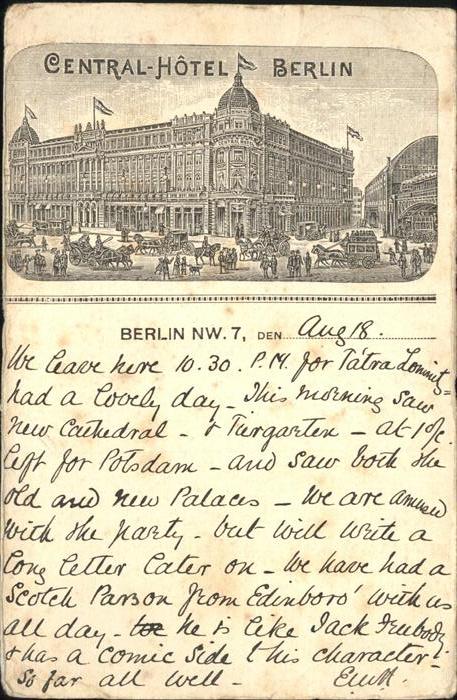 CENTRAL-HÔTEL BERLIN
BERLIN NW. 7, DEN Aug 18.
We leave here 10.30. P.M. for Tátra Lomnit=
had a lovely day - This morning saw
new Cathedral - & Tiergarten - at 1 o/c.
left for Potsdam - and saw both the
old and new Palaces - We are amused
with the party - but will write a
long letter later on - We have had a
Scotch Parson from Edinboro' with us
all day - he is like Jack
& has a comic side t his character -
So far all well -